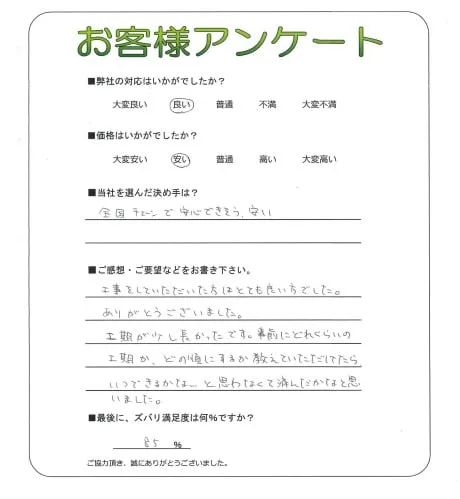 お客様アンケート
■弊社の対応はいかがでしたか？
大変良い 良い 普通 不満 大変不満
■価格はいかがでしたか？
大変安い 安い 普通 高い 大変高い
■当社を選んだ決め手は？
全国チェーンで安心できそう、安い
■ご感想・ご要望などをお書き下さい。
工事をしていただいた方はとても良い方でした。
ありがとうございました。
工期が少し長かったです。事前にどれくらいの
工期か、どの様にするか教えていただけてたら
いつできるかなぁ〜と思わなくて済んだかなと思
いました。
■最後に、ズバリ満足度は何%ですか？
85 %
ご協力頂き、誠にありがとうございました。